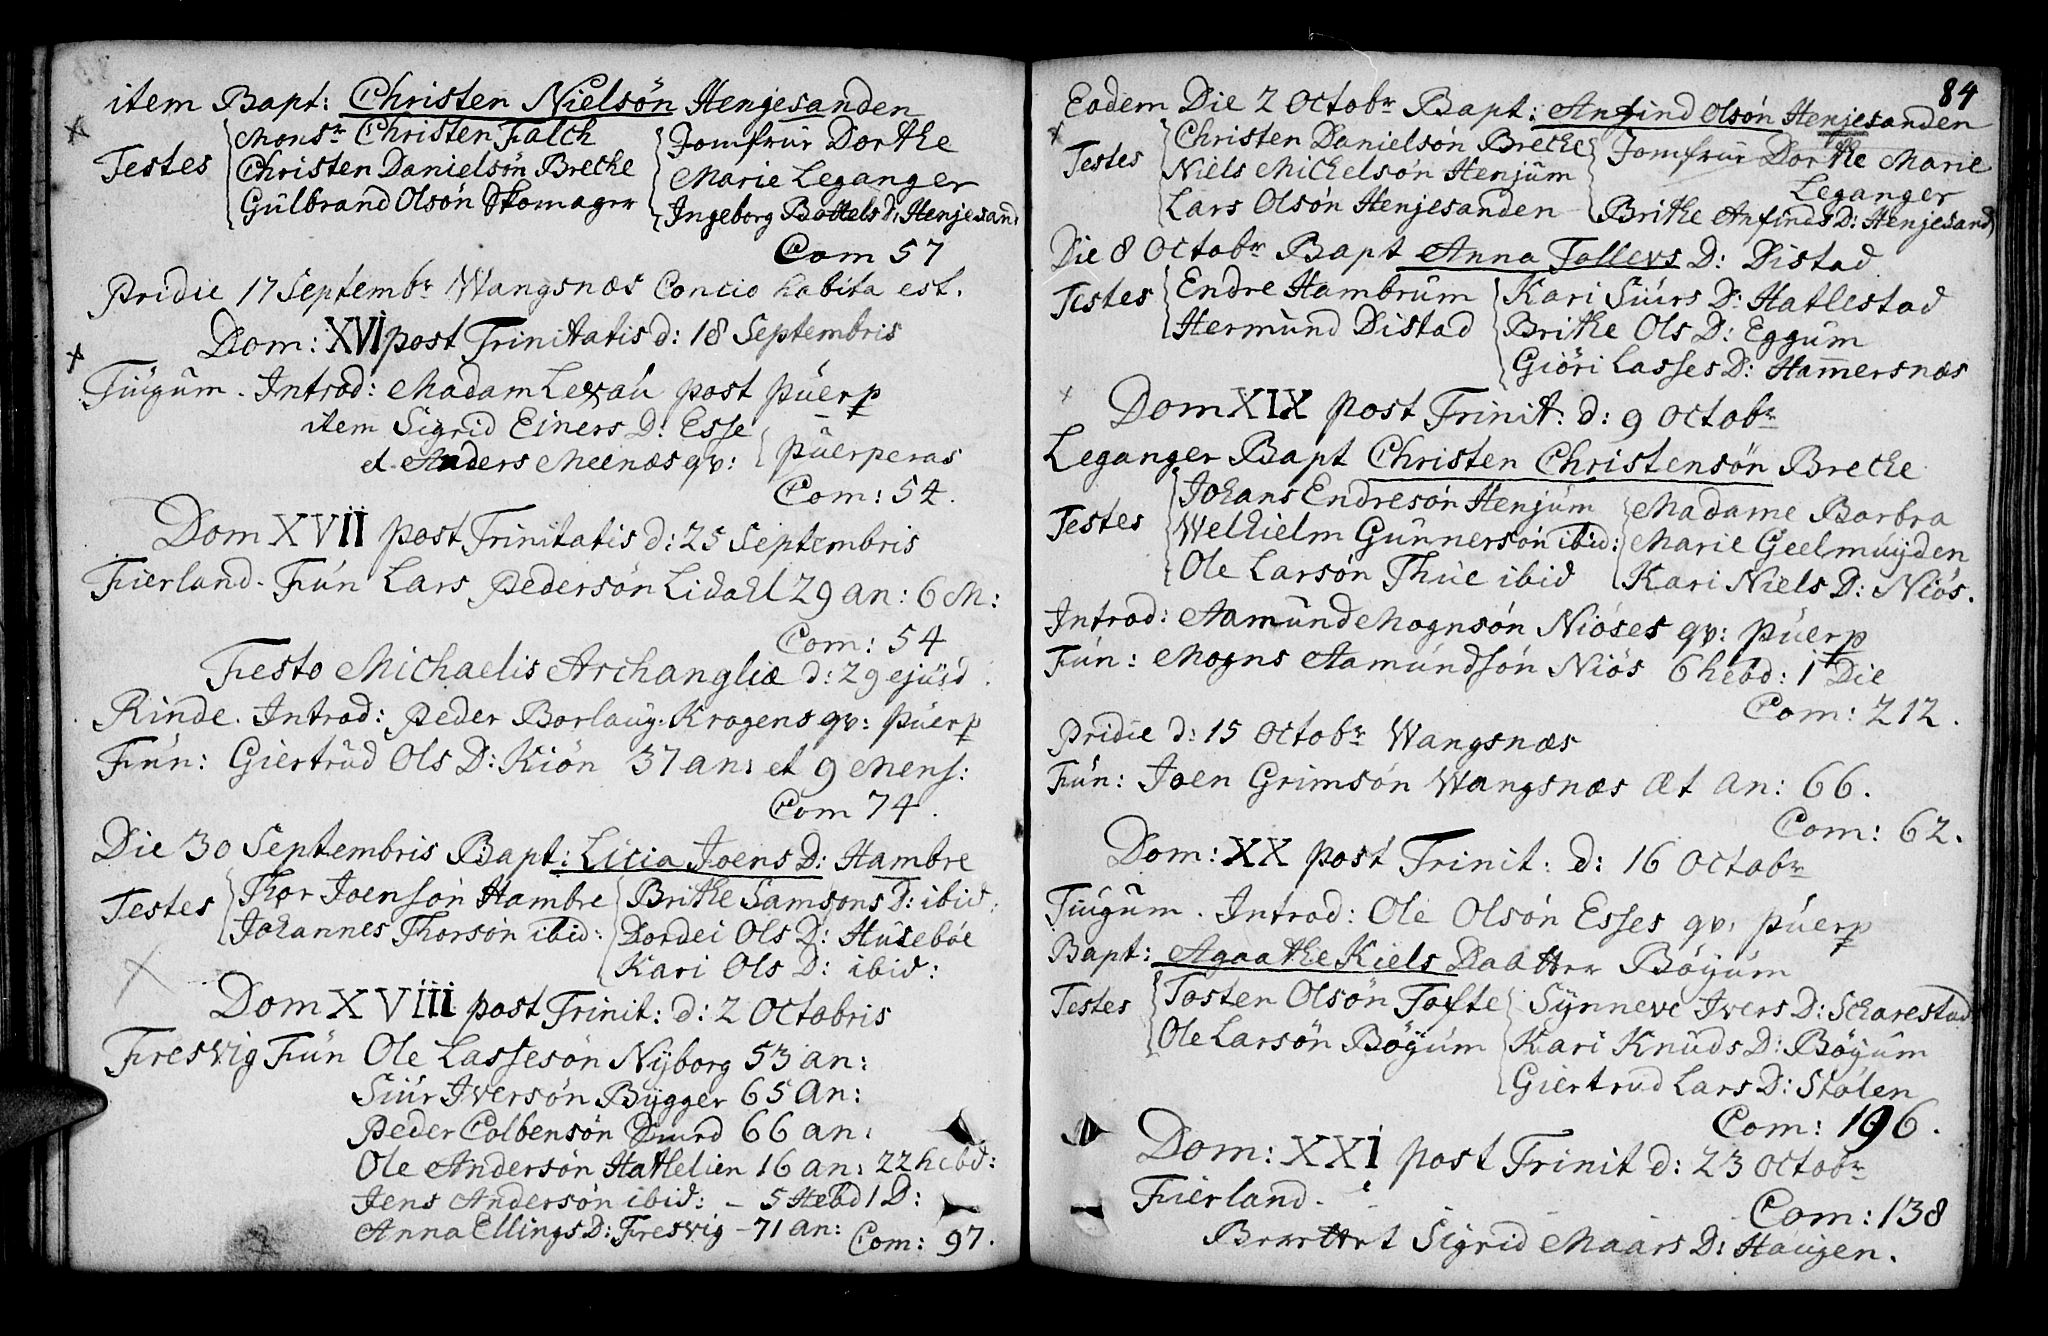 item Bapt: Christen Nielsön Henjesanden
Testes Monsr Christen Falch
Christen Danielsön Breche
Gulbrand Olsön Skomager
Jomfrur Dorthe
Marie Leganger
Ingeborg Bottels d: Henjesand:
Com 57
Pridie 17 Septembr Wangsnæs Concio habita est.
Dom: XVI post Trinitatis d: 18 Septembris
Tiugum. Introd: Madam Lexau post puerp
item Sigrid Einers D: Esse
et Anders Meenæs qv: puerperas
Com: 54.
Dom XVII post Trinitatis d: 25 Septembris
Fierland. Fun Lars Pedersön Lidahl 29 an: 6 M:
Com: 54
Festo Michaelis Archangliæ d: 29 ejusd.
Rinde. Introd: Peder Borlaug. Krogens qv: puerp
Fun: Giertrud Ols D: Kiön 37 an: et 9 Mens:
Com 74.
Die 30 Septembris Bapt: Licia Joens D: Hambre
Testes Thor Joensön Hambre
Johannes Thorsön ibid:
Brithe Samsons D: ibid:
Dordei Ols D: Huseböe
Kari Ols D: ibid:
Dom XVIII post Trinit: d: 2 Octobris
Fresvig Fun Ole Lassesön Nyborg 53 an:
Siur Iversön Bygger 65 an:
Peder Colbensön 66 an:
Ole Andersön Hatlelien 16 an: 22 hebd:
Jens Andersön ibid: – 5 Hebd 1 D:
Anna Ellings D: Fresvig – 71 an:
Com: 97.
84
Eodem Die 2 Octobr Bapt: Anfind Olsön Henjesanden
Testes Christen Danielsön Breche
Niels Michelsön Henjum
Lars Olsön Henjesanden
Jomfrur Dorthe Marie
Leganger
Brithe Anfinds D: Henjesand
Die 8 Octobr Bapt Anna Tollevs D: Distad
Testes Endre Hambrum
Hermund Distad
Kari Siurs D: Hatlestad
Brithe Ols D: Eggum
Giöri Lasses D: Hamersnæs
Dom XIX post Trinit: d: 9 Octobr
Leganger Bapt Christen Christensön Breche
Testes Johans Endresön Henjum
Welhielm Gunnersön ibid:
Ole Larsön Thue ibid
Madame Barbra
Marie Geelmuyden
Kari Niels D: Niös.
Introd: Aamund Mognsön Niöses qv: puerp
Fun: Mogns Aamundsön Niös 6 hebd: 1 Die
Com: 212.
Pridie d: 15 Octobr Wangsnæs
Fun: Joen Grimsön Wangsnæs æt an: 66.
Com: 62.
Dom: XX post Trinit: d: 16 Octobr
Tiugum. Introd: Ole Olsön Esses qv: puerp
Bapt: Agaathe Kiels Daatter Böyum
Testes Tosten Olsön Tofte
Ole Larsön Böyum
Synneve Ivers D: Scharestad
Kari Knuds D: Böyum
Giertrud Lars D: Stölen
Com: 196.
Dom: XXI post Trinit d: 23 Octobr
Fierland.
Com: 138
Sigrid Maars D: Haugen.